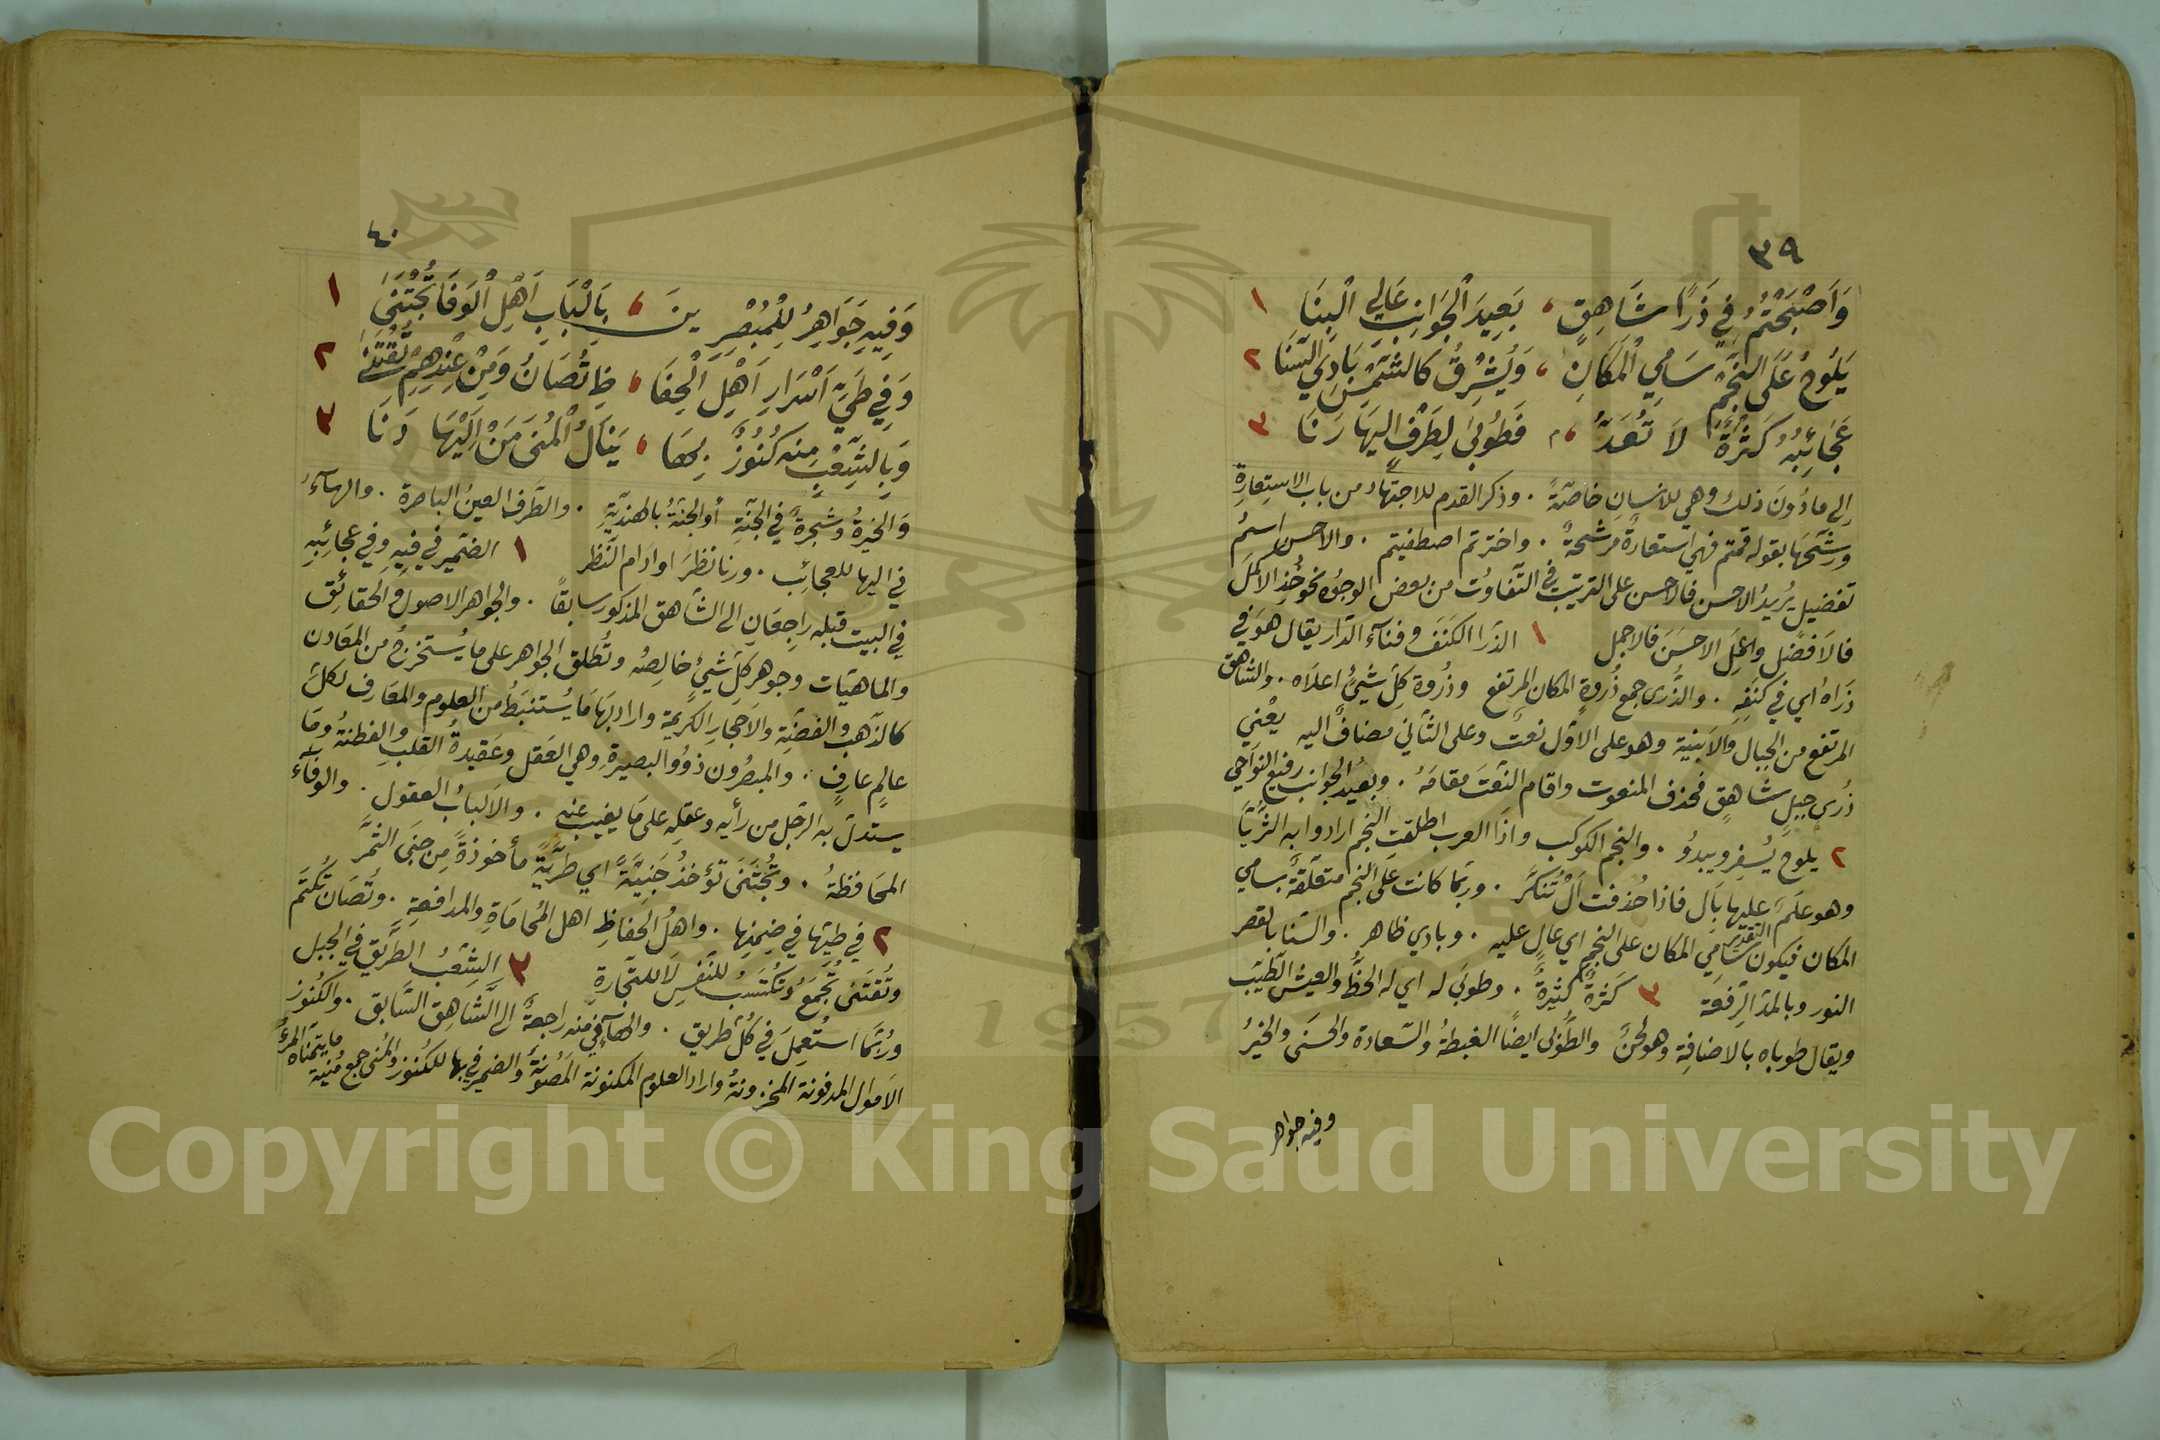 ٣٩
وَاَصْبَحْتُمُ فِي ذَرًا شَاهِقٍ ، بَعِيدَ الْجَوَانِبِ عَالِي الْبِنَا ١
يَلُوحُ عَلَى النَّجْمِ سَامِي الْمَكَانِ ، وَيُشْرِقُ كالشَّمْسِ بَادِي السَّنَا ٢
عَجَائِبُهُ كَثْرَةً لَا تُعَدُّ ، فَطُوبَى لِطَرْفٍ اليهَا رَنَا ٣
اِلى مادُونَ ذلك وهي للانسانِ خاصّةً . وذكر القدم للاجتهاد من باب الاستِعارةِ
ورشّحَها بقوله قمتم فهي استعارةٌ مرشّحةٌ . واخترتم اصطفيتم . والاحسن اسمُ
تفضيل يُريدُ الاحسن فالاحسن على الترتيب في التّفاوُت من بعض الوجُوه نحوخُذِ الاكملَ
فالَافضَل واعْمَلِ الاحسَنَ فالاجمل ١ الذَرا الكَنَفَ وفنآء الدّار يقال هوَ في
ذَراهُ اي في كنَفِهِ . والذُّرى جمع ذُروةٍ المكان المرتفع وذُروة كلّ شيْءٍ اعلاه . والشّاهق
المرتفع من الجبال والابنية وهو على الاوّل نعتٌ وعلى الثّاني مضافٌ اليه يعْني
ذُرى جبلٍ شاهقٍ فحذف المنعوت واقام النّعتَ مقامَهُ . وبعيُد الجوانب رفيع النّواحي
٢ يلوح يُسفِر ويبدُو . والنجم الكوكب واذا العرب اطلقتِ النجم ارادوا به الثُّرَيّا
وهو علَمٌ عليها بَال فاذا حُذفت اَلْ تُنكَّر . وربّما كانت على النجم متعلّقةً بسامي
المكان فيكون التقدير سَامِي المكان على النجم اي عالٍ عليه . وبادي ظاهر . والسّنا بالقصر
النور وبالمدّ الرِّفعَة ٣ كَثرةً كثيرةً . وطوبَى له اي له الحظّ والعيش الطّيّب
ويقال طوباه بالاضافِةِ وهو لحنٌ والطُّوبى ايضًا الغبطةُ والسّعادة والحسنَى والخيرُ
وفيه جواهر
٤٠
وَفِيهِ جَوَاهِرُ لِلْمُبْصِرِينَ ، بِاَلْبَابِ اَهْلِ الْوَفَا تُجْتَنَى ١
وَفِي طَيِّ اَسْرَارِ اَهْلِ الْحِفَا ، ظِ تُصَانُ وَمِنْ عِنْدِهِمْ تُقْتَنَى ٢
وَبِالشِّعْبِ مِنه كُنُوزٌ بِهَا ، يَنَالُ الْمُنَى مَنْ اِلَيْهَا دَنَا ٣
وَالخيرةُ وشجرةٌ في الجنّةِ أو الجنّةُ بالهنديّةِ . والطّرف العينُ الباصرة . والهآءُ
في اليها للعجائِب . ورنا نظَرَ او ادَام النّظر ١ الضّمير في فيهِ وفي عجائِبهِ
في البيت قبله راجِعَانِ الى الشّاهق المذكور سابقاً . والجواهر الاصول والحقائِق
والماهيّات وجوهر كلّ شيْءٍ خالِصُه وتُطلق الجواهر على ما يُستخرجُ من المعَادن
كالذّهب والفضّةِ والاَحجارِ الكريمةِ واراد بهَا مَا يُستنبَطُ من العلوم والمعَارف لكلّ
عالِمٍ عارِفٍ . والمبصرُون ذوُو البصيرةِ وهي العَقل وعَقيدةُ القلبِ والفطنةُ ومَا
يستدلّ به الرّجل من رأيِه وعَقلِه على مَا يغيب عنه . والاَلبابُ العقول . والوفآءُ
المحَافظةُ . وتُجْتَنَى تؤخذُ جَنِيَّةً اي طريَّةً مأخوذةً مِن جنَى الثمَّر
٢ في طيّها في ضِمنِها . واهلُ الحفاظِ اهل المُحامَاةِ والمدافعةِ . وتُصَان تُكتَم
وتُقتَنى تُجمَعُ وتُكتَسَبُ للنّفسِ لَا للتجّارةِ ٣ الشِعْبُ الطّريق في الجبل
ورُبّمَا استُعمِلَ في كُلّ طريق . والهآءُ في منه راجعةٌ الى الشّاهِق السّابق . والكُنُوز
الاَموال المدفونة المخزونةُ واراد العلوم المكنونة المَصُونةَ والضمير في بها للكُنوز والمُنى جمع مُنيةٍ
مايتمنّاه المرءُ